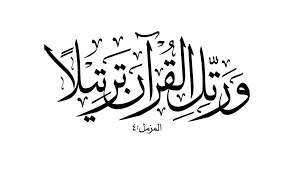 وَرَتِّلِ الْقُرْآنَ تَرْتِيلًا
المزمل:٤